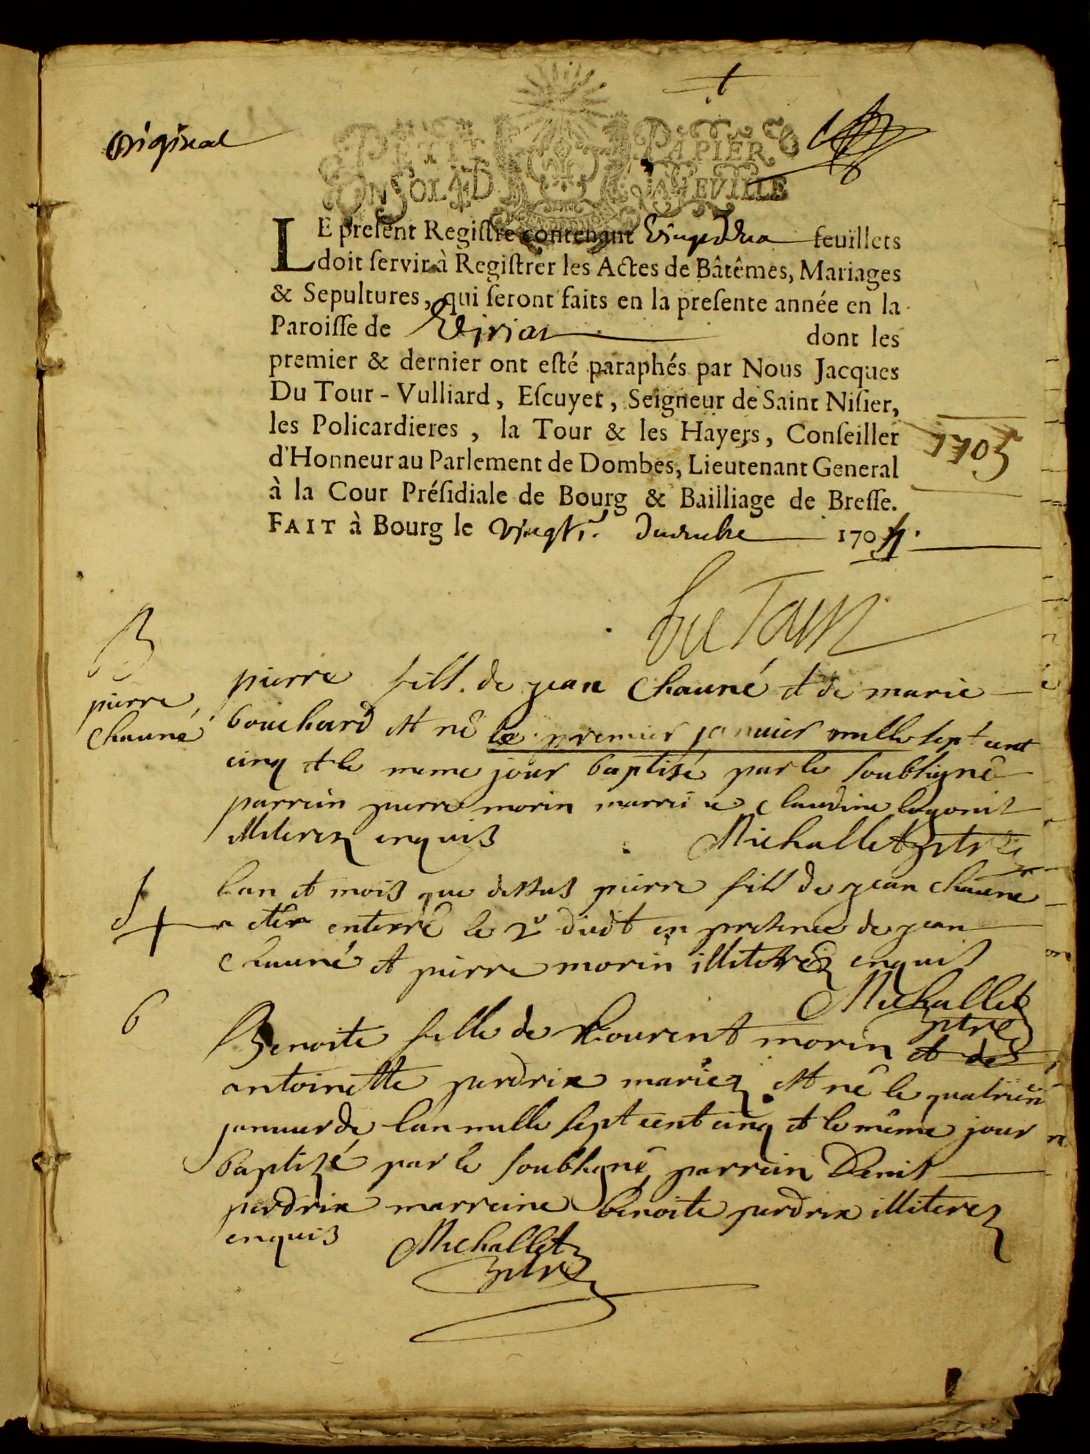 Original
PETIT PAPIER
UN SOL 4 D LA FEUILLE
LE present Registre contenant feuillets
doit servir à Registrer les Actes de Bâtêmes, Mariages
& Sepultures, qui seront faits en la presente année en la
Paroisse de Viriat dont les
premier & dernier ont esté paraphés par Nous Jacques
Du Tour-Vulliard, Escuyer, Seigneur de Saint Nisier,
les Policardieres, la Tour & les Hayes, Conseiller
d'Honneur au Parlement de Dombes, Lieutenant General
à la Cour Présidiale de Bourg & Bailliage de Bresse.
FAIT à Bourg le 1704.
1705
Du Tour
B
pierre
Chauné
pierre fils de jean Chauné et de marie
bouchard est né le premier januier mille sept cent
cinq et le meme jour baptisé par le soubsigné
parrein pierre morin marreine claudine
illiterez enquis Michallet ptre
S
lan et mois que dessus pierre fils de jean chauné
a eté enterré le 2e dudt en presence de jean
chauné et pierre morin illiterez enquis
Michallet
ptre
B
Benoite fille de Laurent morin et de
antoinette perdrix mariez est né le quatrieme
januier de lan mille sept cent cinq et le même jour
baptizé par le soubsigné parrein Denis
perdrix marreine benoite perdrix illiterez
enquis Michallet
ptre